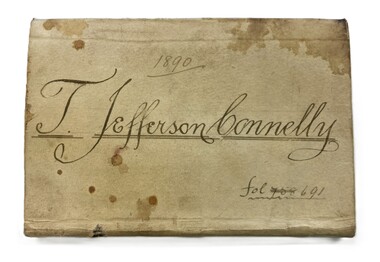 1890
T. Jefferson Connelly
fol 691